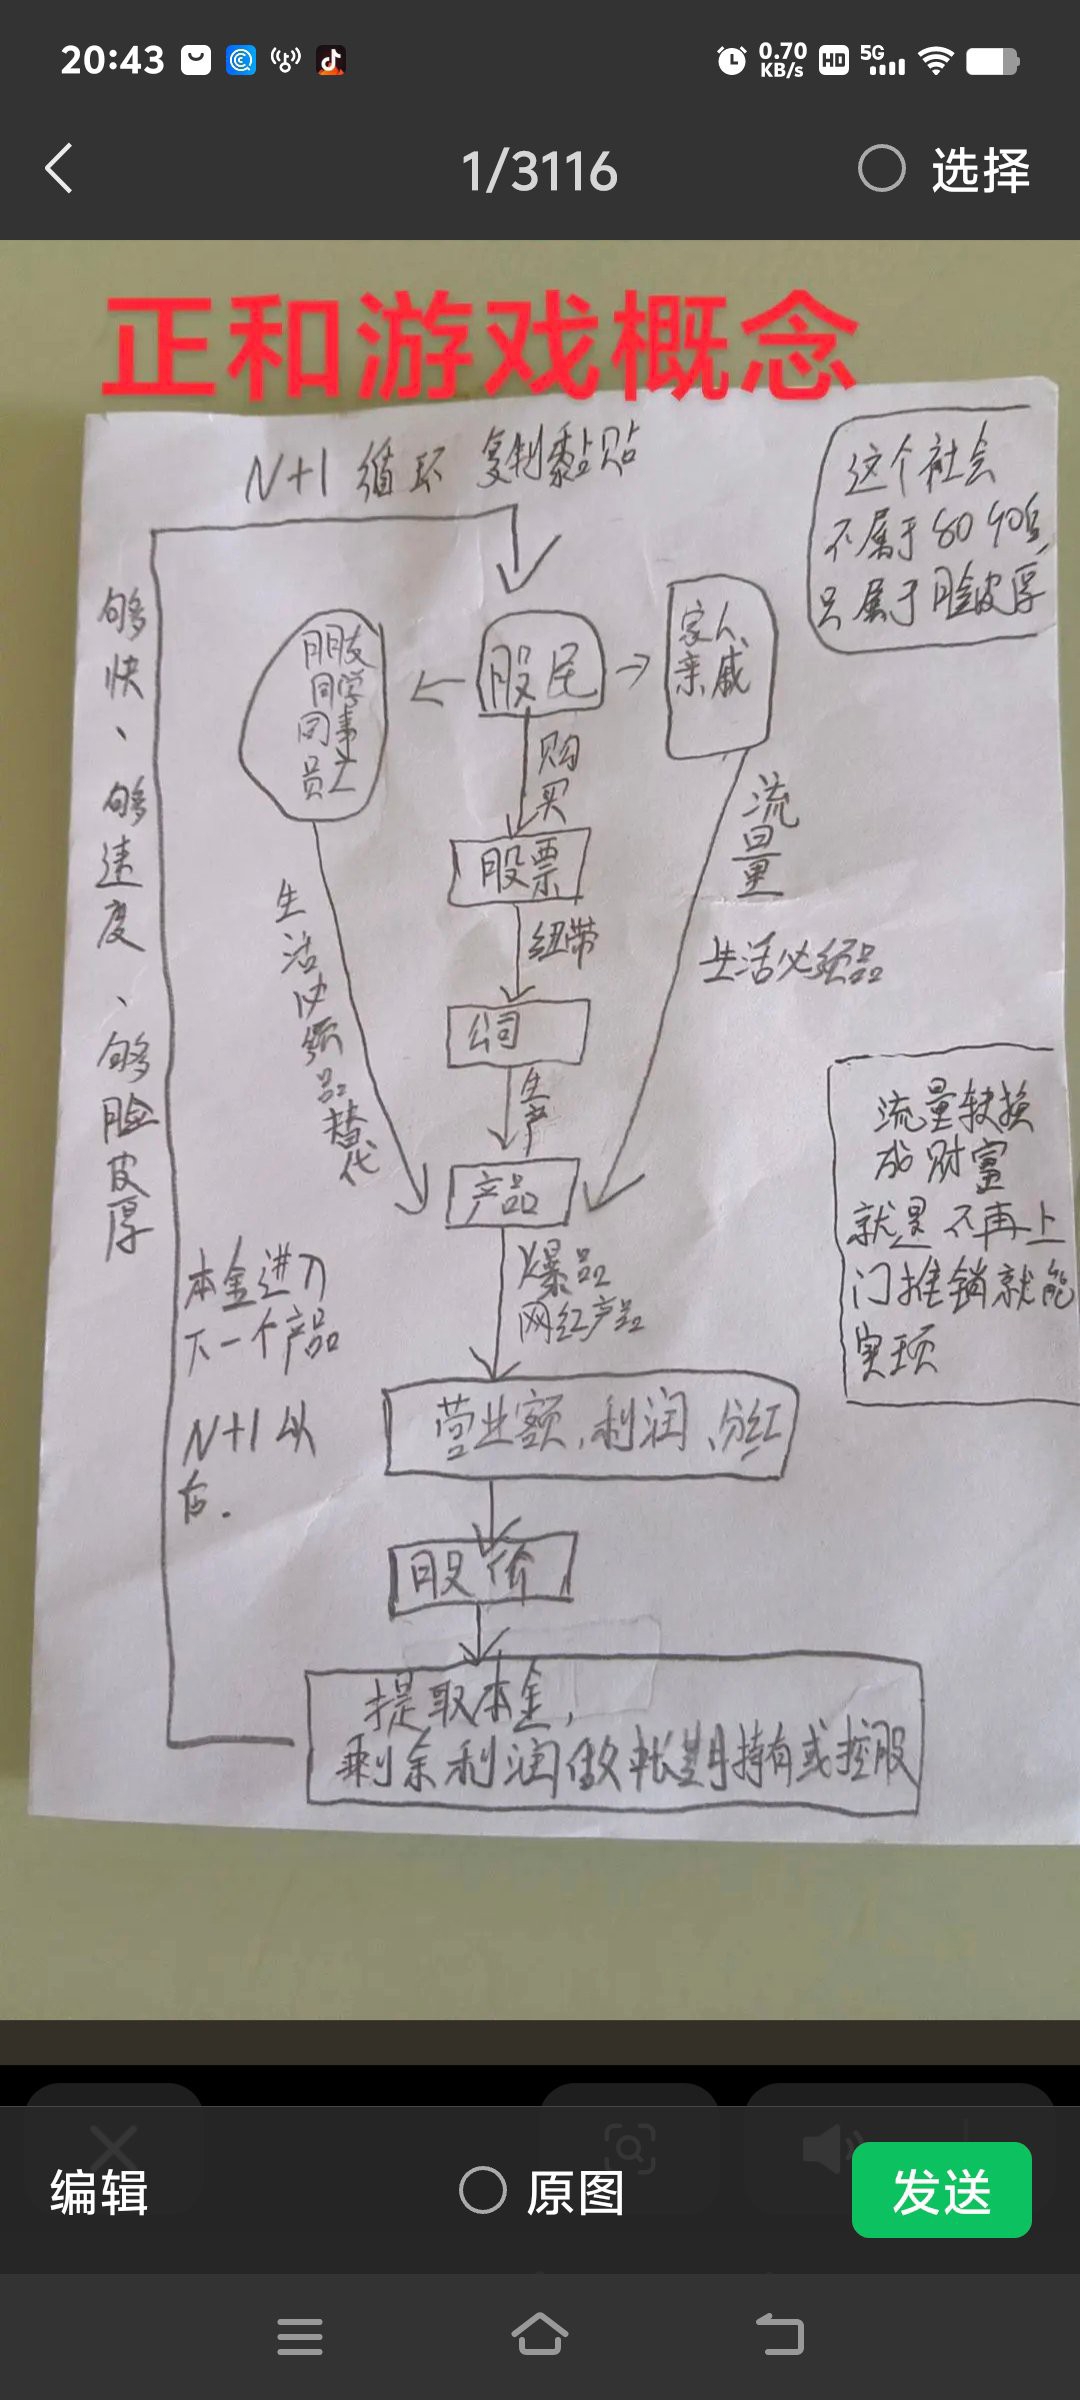 20:43
0.70
KB/s
HD
5G
1/3116
选择
正和游戏概念
N+1 循环 复制黏贴
这个社会
不属于80 90后,
只属于脸皮厚
够快、够速度、够脸皮厚
朋友
同学
同事
员工
股民
家人、
亲戚
购买
流量
股票
纽带
生活必须品替代
生活必须品
公司
生产
产品
流量转换
成财富
就是不再上
门推销就能
实现
爆品
网红产品
本金进入
下一个产品
N+1 以
后.
营业额,利润、分红
股价
提取本金,
剩余利润做长期持有或控股
编辑
原图
发送